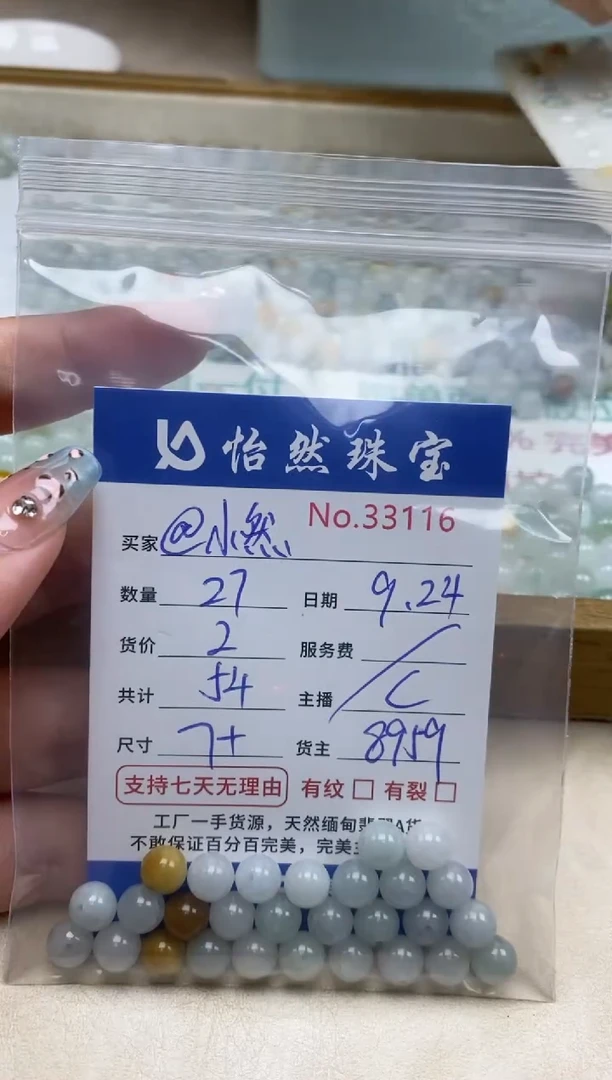 怡然珠宝
No.33116
买家 @小然
数量 27 日期 9.24
货价 2 服务费 /
共计 54 主播 C
尺寸 7+ 货主 8959
支持七天无理由 有纹 □ 有裂 □
工厂一手货源，天然缅甸翡翠A货
不敢保证百分百完美，完美